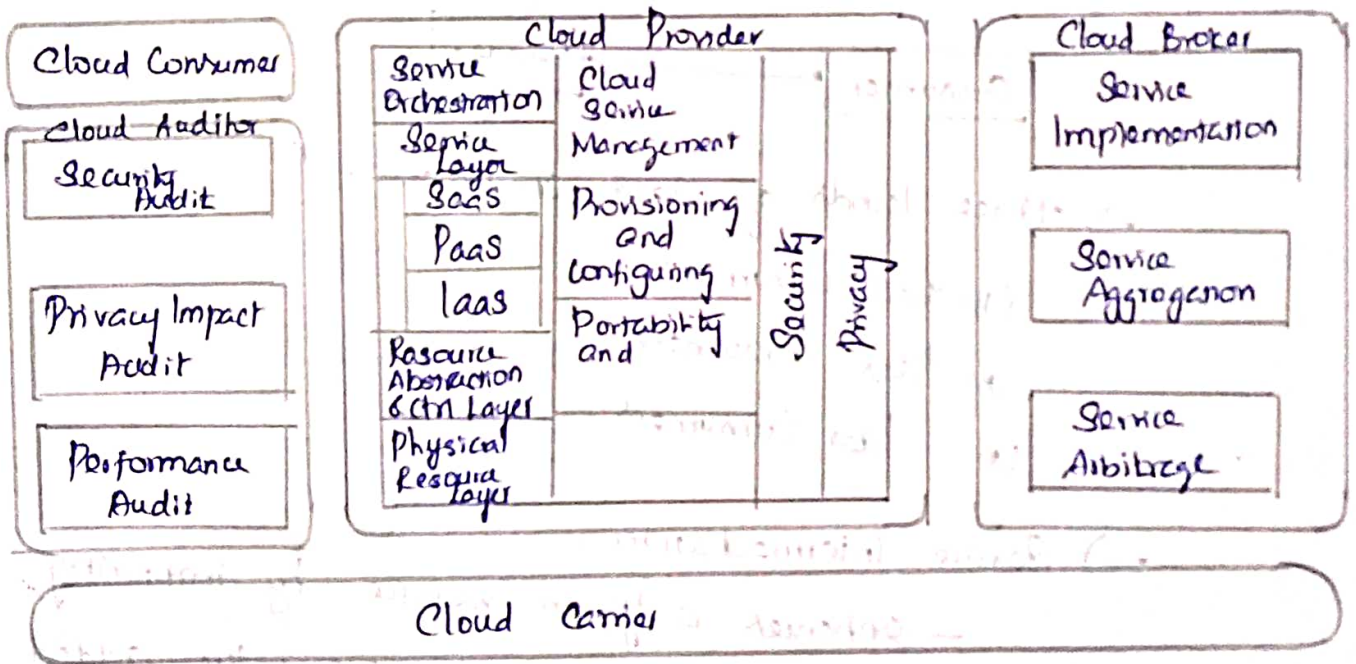 Cloud Consumer
Cloud Auditor
Security
Audit
Privacy Impact
Audit
Performance
Audit
Cloud Provider
Service
Orchestration
Service
Layer
SaaS
PaaS
IaaS
Resource
Abstraction
& Ctrl Layer
Physical
Resource
Layer
Cloud
Service
Management
Provisioning
and
Configuring
Portability
and
Security
Privacy
Cloud Broker
Service
Implementation
Service
Aggregation
Service
Arbitrage
Cloud Carrier